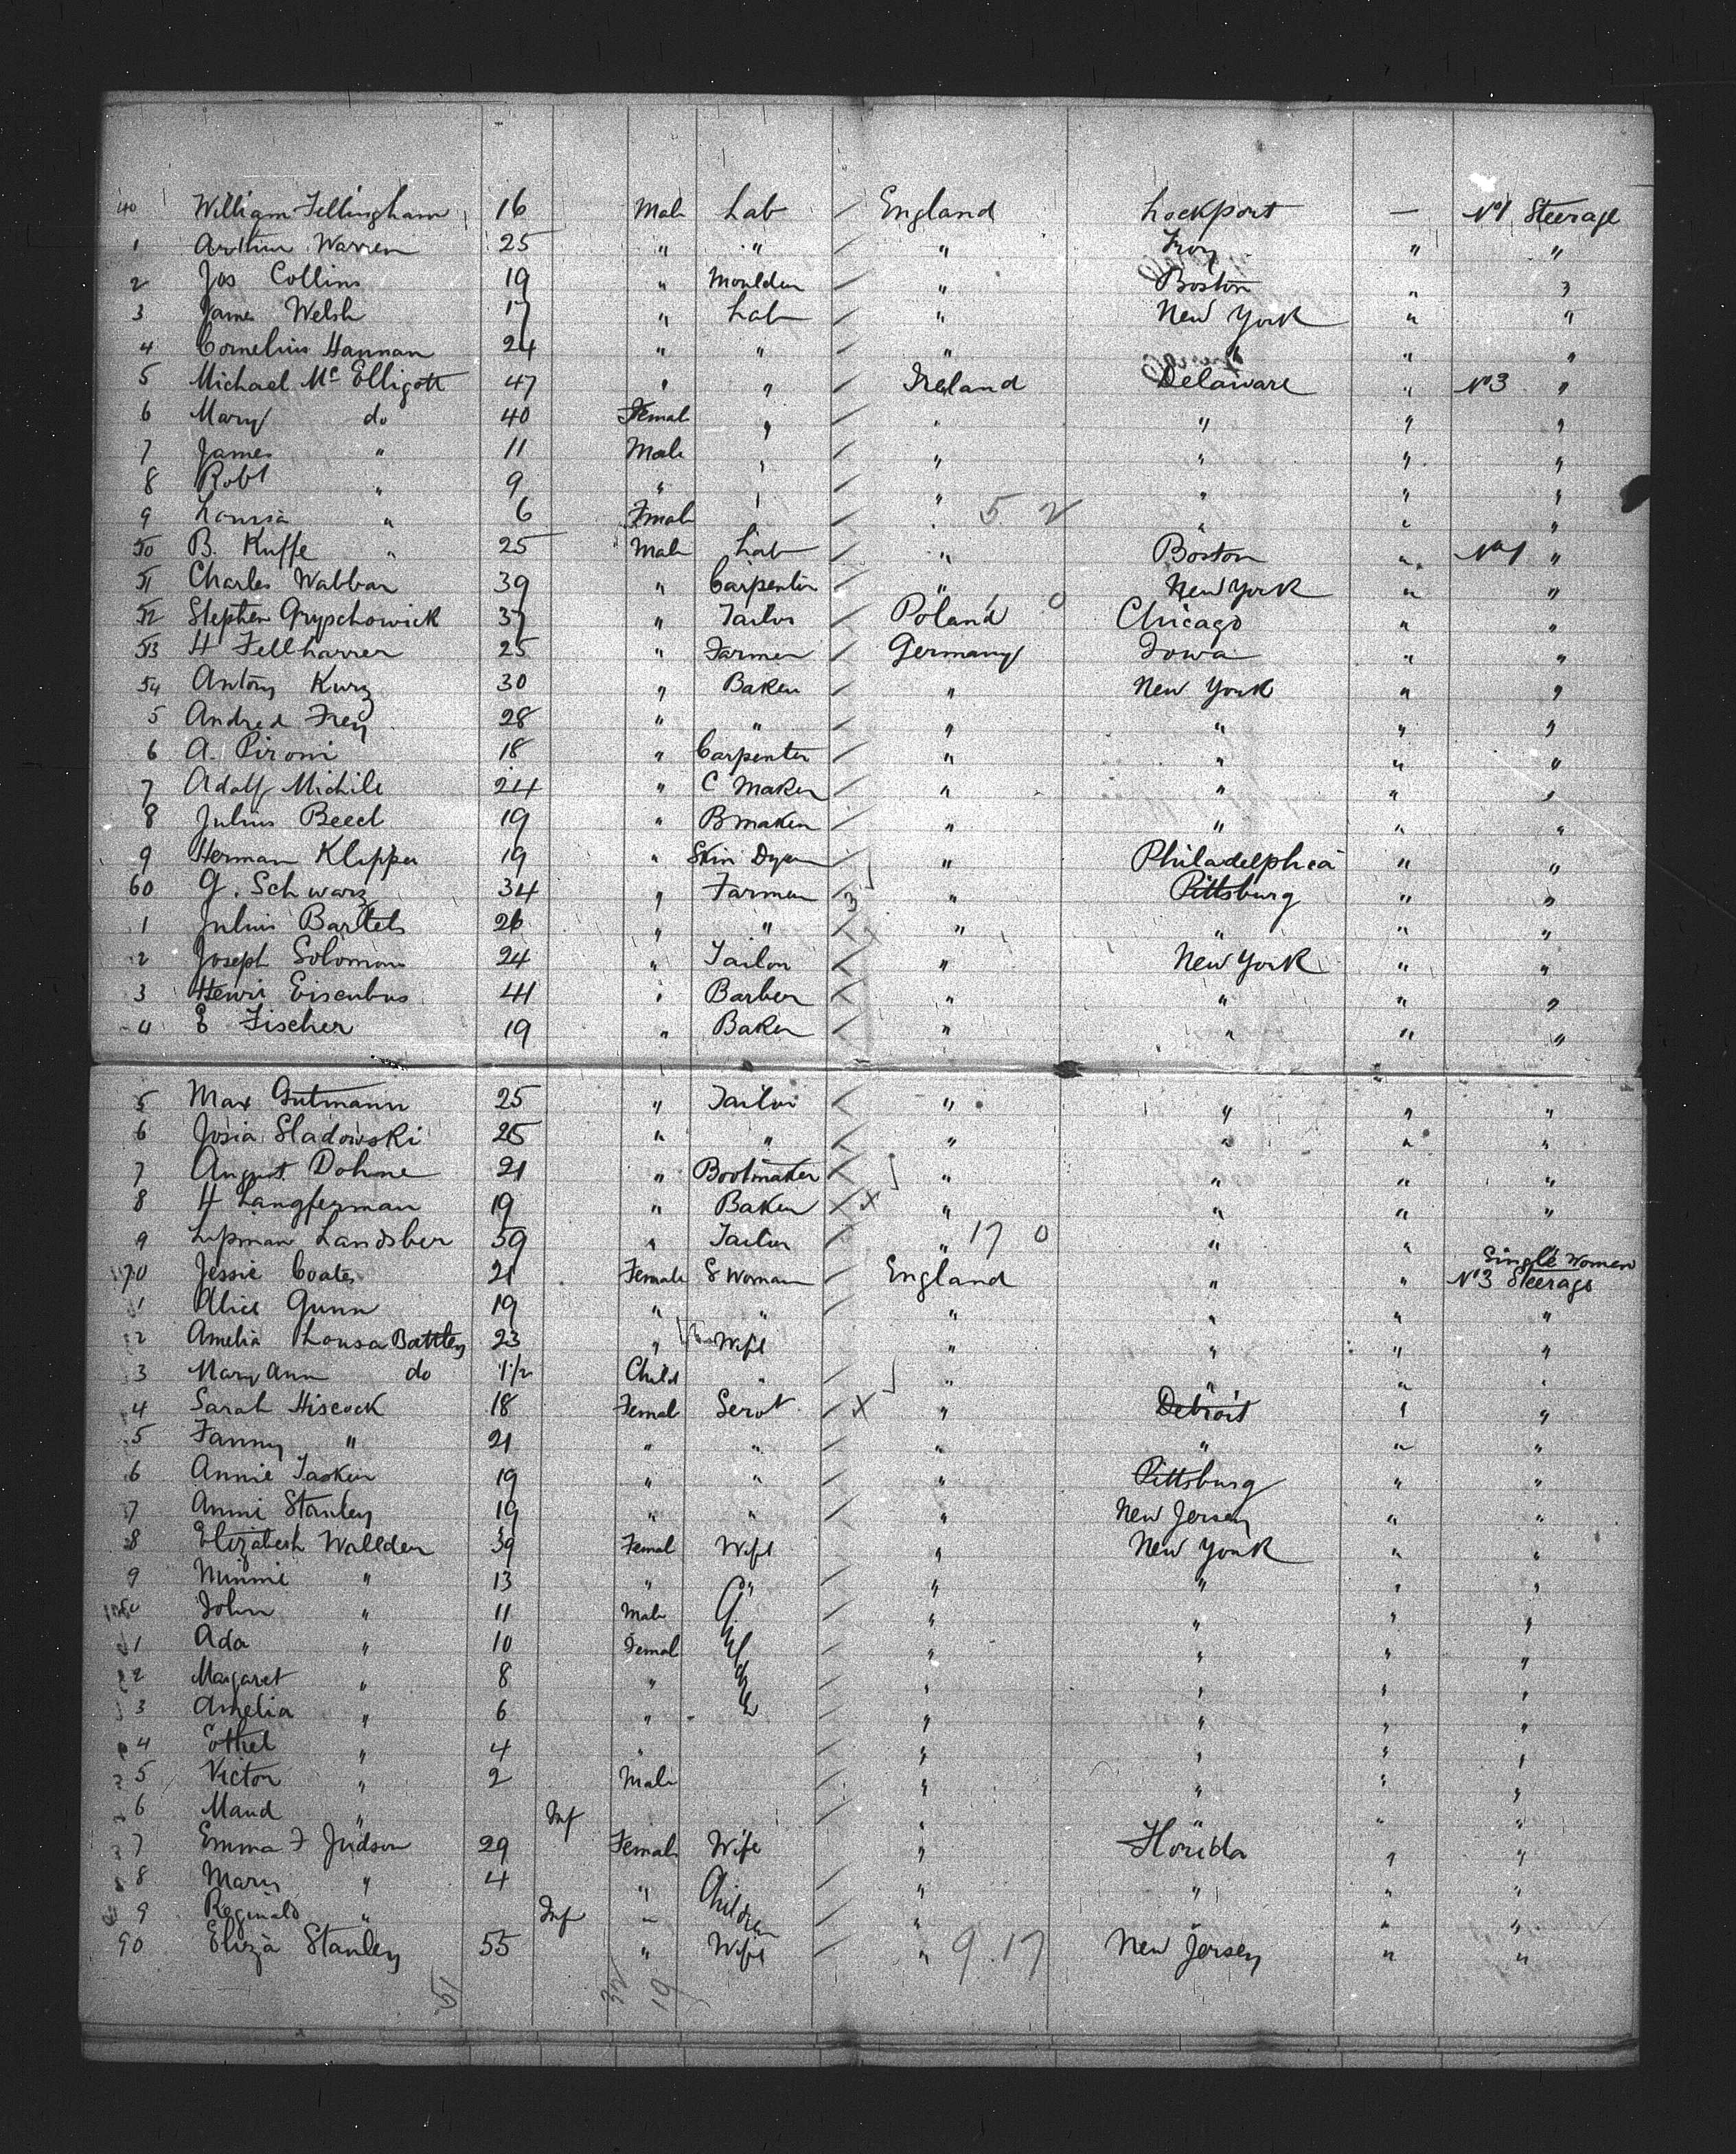 40 William Fillingham 16 Male Lab / England Lockport — No 1 Steerage
1 Arthur Warren 25 " " / " Troy " "
2 Jos Collins 19 " Moulder / " Boston " "
3 James Welsh 17 " Lab / " New York " "
4 Cornelius Hannan 24 " " / " " " "
5 Michael Mc Elligott 47 " " / Ireland Delaware " No 3 "
6 Mary do 40 Female " / " " " "
7 James " 11 Male " / " " " "
8 Robt " 9 " " / " " " "
9 Lousia " 6 Female " / " 5 2 " " "
50 B. Kuffe " 25 Male Lab / " Boston " No 1 "
51 Charles Wabbar 39 " Carpenter / " New York " "
52 Stephen Grypchowick 37 " Tailor / Poland 1 0 Chicago " "
53 H Fellharrer 25 " Farmer / Germany Iowa " "
54 Antony Kurz 30 " Baker / " New York " "
5 Andred Frey 28 " " / " " " "
6 A. Pironi 18 " Carpenter / " " " "
7 Adolf Michile 24 " C Maker / " " " "
8 Julius Beecl 19 " B maker / " " " "
9 Herman Klipper 19 " Skin Dyer / " Philadelphia " "
60 G. Schwarz 34 " Farmer / 3 " Pittsburg " "
1 Julius Bartels 26 " " X " " " "
2 Joseph Solomon 24 " Tailor X " New York " "
3 Henri Eisenbus 41 " Barber X " " " "
4 E Fischer 19 " Baker / " " " "
5 Max Gutmann 25 " Tailor / " " " "
6 Josia Sladowski 25 " " / " " " "
7 August Dohme 21 " Bootmaker / " " " "
8 H Langferman 19 " Baker X X " " " "
9 Lipman Landsber 59 " Tailor / " 17 0 " " "
Single Women
70 Jessie Coates 21 Female S Woman / England " " No 3 Steerage
1 Alice Gunn 19 " " / " " " "
2 Amelia Lousa Battley 23 " Wife " " " "
3 Mary Ann do 1 1/2 Child " / " " " "
4 Sarah Hiscock 18 Female Servt / X " Detroit " "
5 Fanny " 21 " " / " " " "
6 Annie Tasker 19 " " / " Pittsburg " "
7 Anni Stanley 19 " " / " New Jersey " "
8 Elizabeth Wallden 39 Female Wife / " New York " "
9 Minnie " 13 " " / " " " "
John " 11 Male / " " " "
1 Ada " 10 Female / " " " "
2 Margaret " 8 " / " " " "
3 Amelia " 6 " / " " " "
4 Ethel " 4 " / " " " "
5 Victor " 2 Male / " " " "
6 Maud " Inf " / " " " "
7 Emma F Judson 29 Female Wife / " Florida " "
8 Mary " 4 " Children / " " " "
9 Reginald " Inf " / " " " "
90 Eliza Stanley 55 " Wife / " 9 17 New Jersey " "
51 32 19